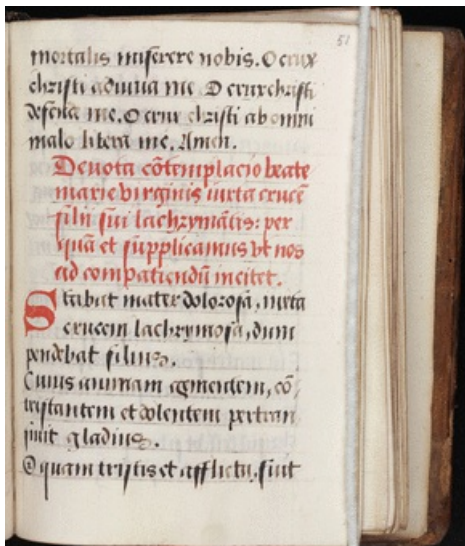 51
mortalis miserere nobis. O crux
christi adiuua me O crux christi
defende me. O crux christi ab omni
malo libera me, Amen.
Deuota cõtemplacio beate
marie virginis iuxta crucẽ
filii sui lachrymãtis: per
quã et supplicamus vt nos
ad compatiendũ incitet.
Stabat mater dolorosa, iuxta
crucem lachrymosa, dum
pendebat filius.
Cuius animam gementem, cõ
tristantem et dolentem pertran
siuit gladius.
O quam tristis et afflicta, fuit